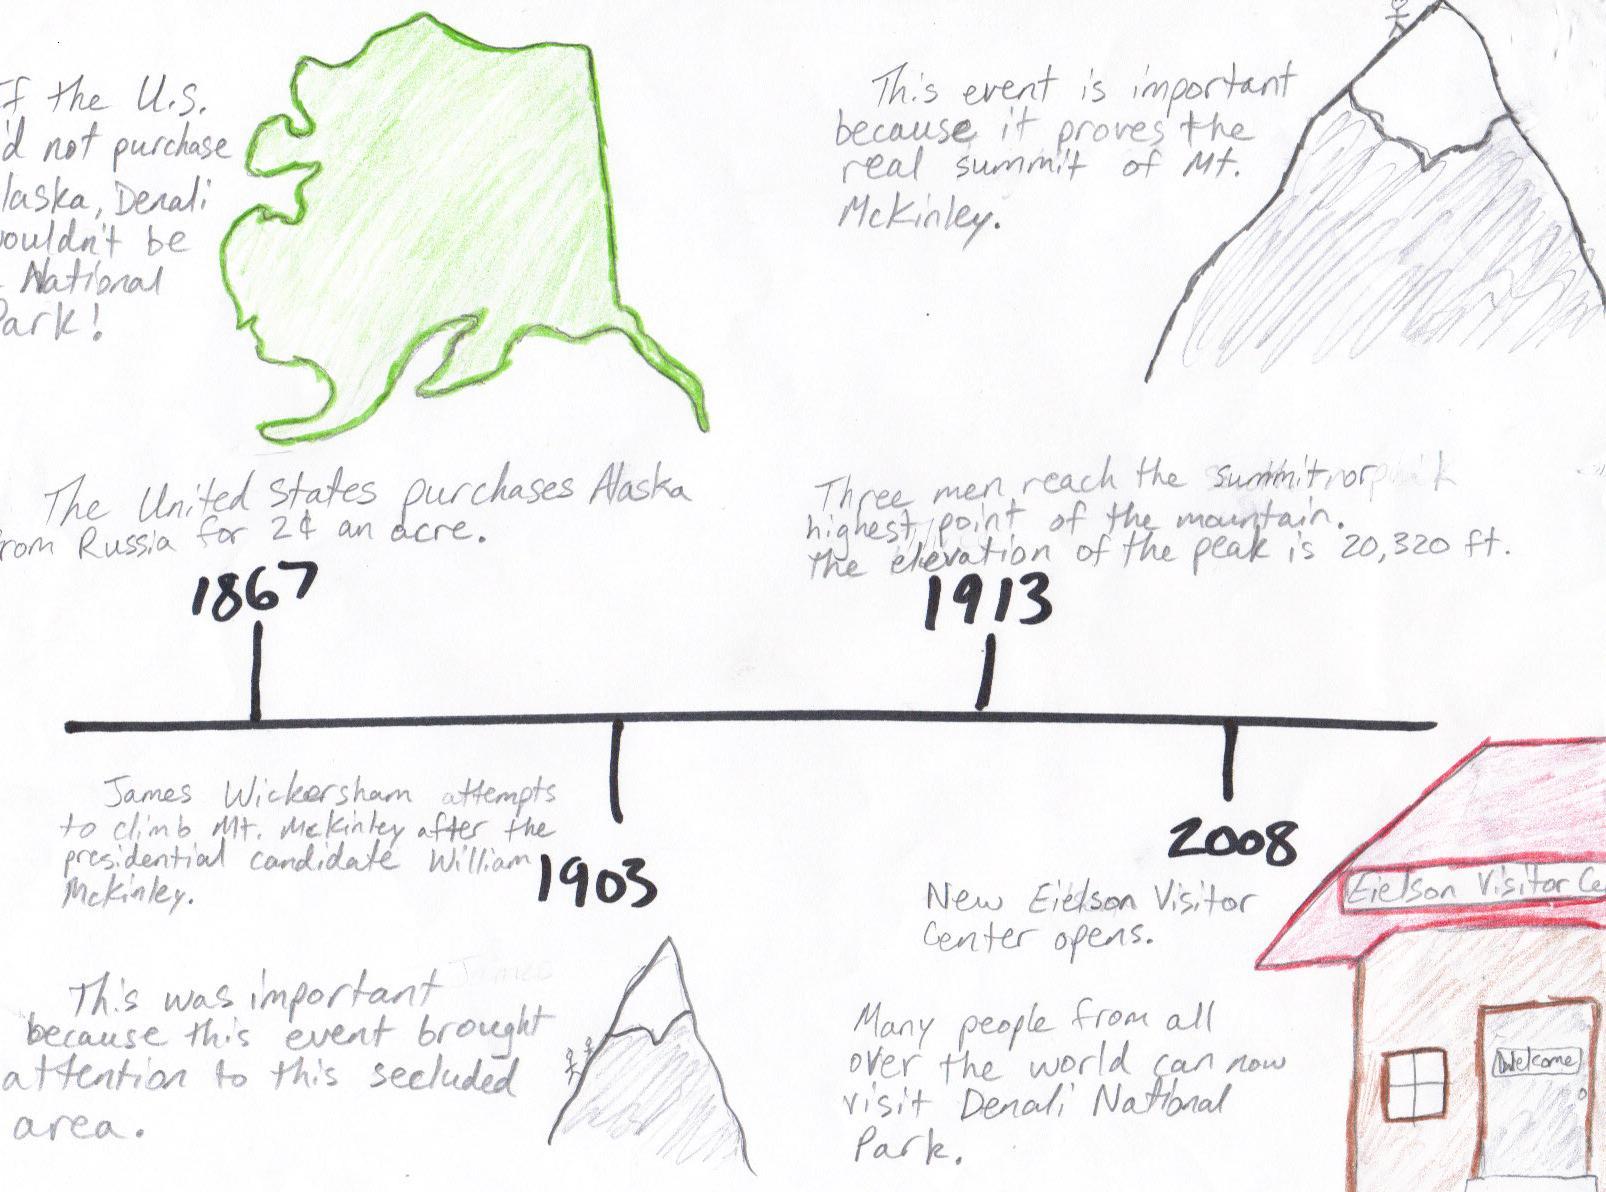 If the U.S.
'd not purchase
laska, Denali
ouldn't be
National
Park!
The United States purchases Alaska
rom Russia for 2¢ an acre.
1867
This event is important
because it proves the
real summit of Mt.
McKinley.
Three men reach the summit, nor
highest point of the mountain.
the elevation of the peak is 20,320 ft.
1913
James Wickersham attempts
to climb Mt. McKinley after the
presidential candidate William
McKinley.
1903
James
This was important
because this event brought
attention to this secluded
area.
2008
New Eielson Visitor
Center opens.
Many people from all
over the world can now
visit Denali National
Park.
Eielson Visitor Ce
Welcome